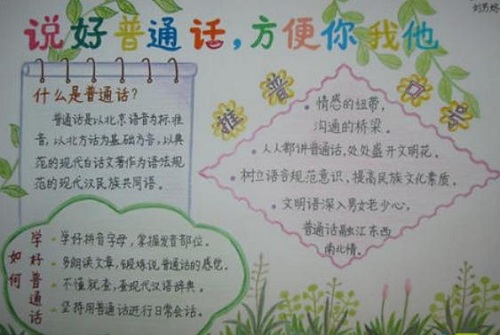 说好普通话,方便你我他
什么是普通话?
普通话是以北京语音为标准
音,以北方话为基础方言,以典
范的现代白话文著作为语法规
范的现代汉民族共同语。
推普口号
情感的纽带,
沟通的桥梁。
人人都讲普通话,处处盛开文明花。
树立语音规范意识、提高民族文化素质。
文明语深入男女老少心,
普通话融江东西
南北情。
如何学好普通话
学好拼音字母,掌握发音部位。
多朗读文章,锻炼说普通话的感觉。
不懂就查,查现代汉语辞典。
坚持用普通话进行日常会话。